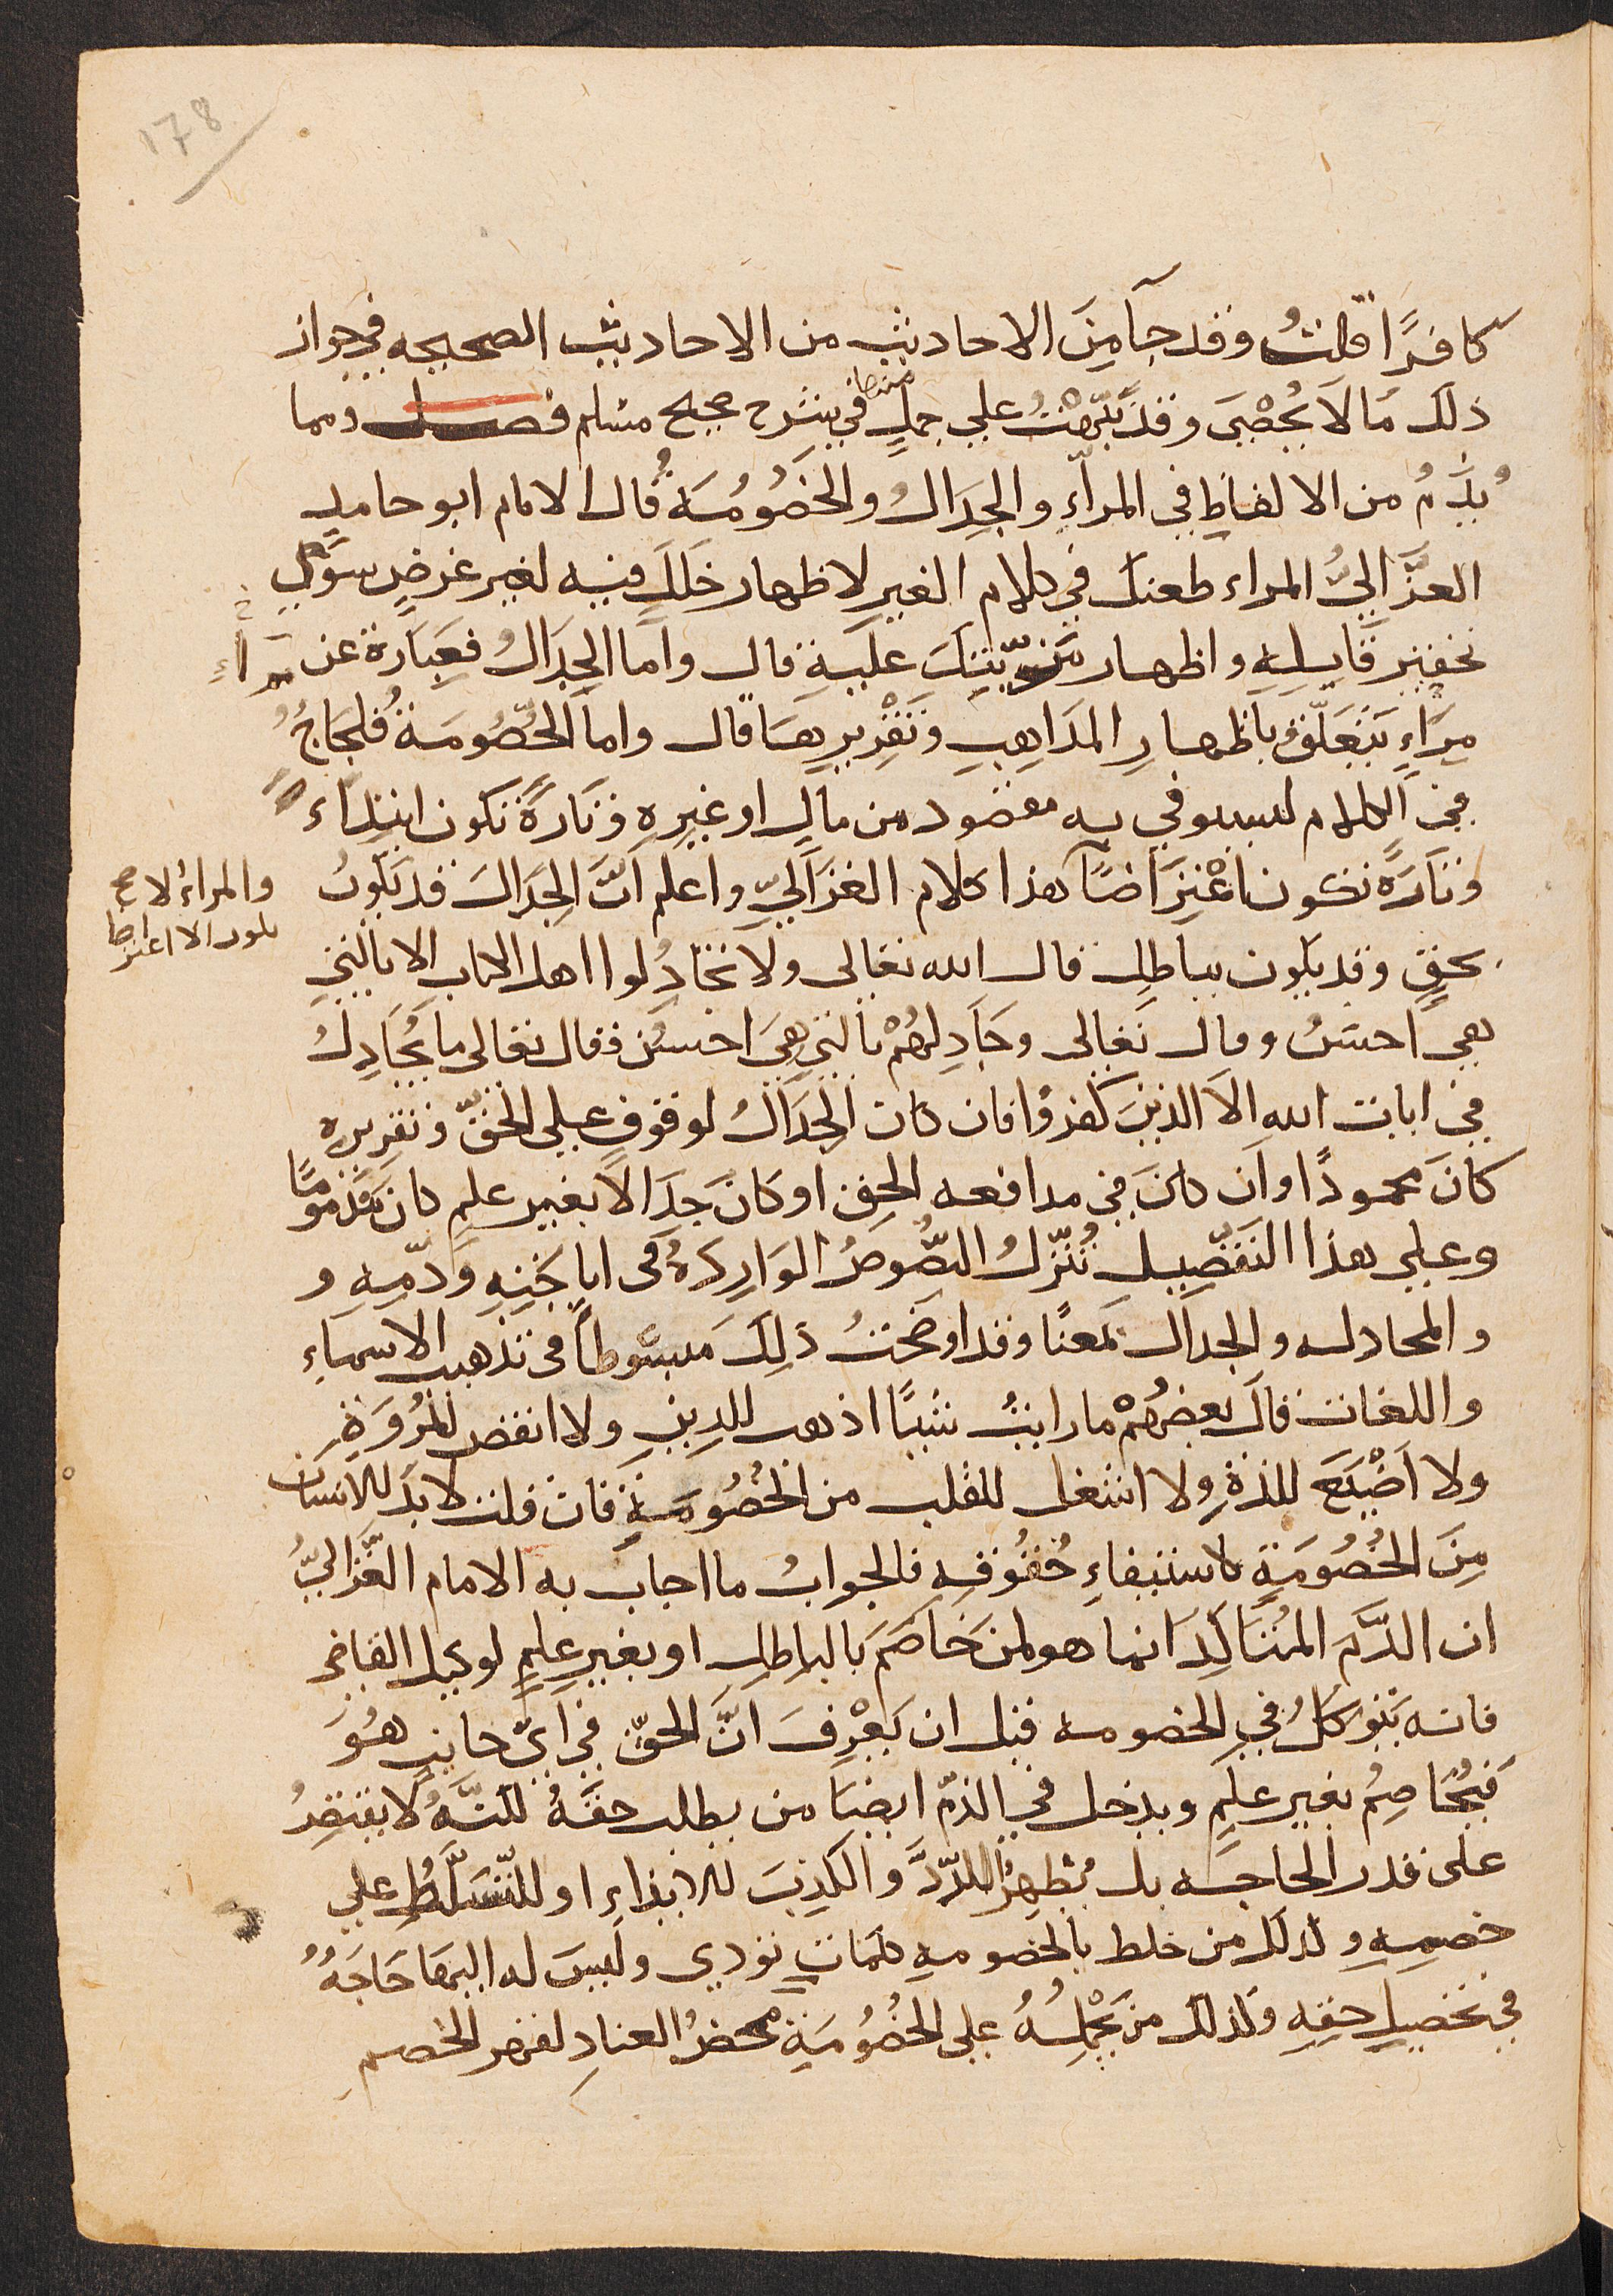 178
كافرًا قلتُ وقد جآ مِنَ الاحاديث من الاحاديث الصحيحه في جواز
ذلك مَا لا يُحْصَى وقد نبّهْتُ على جملٍ منها في شرح صحيح مسلم فصل ومما
يُذَمُّ من الالفاظِ في المرآءِ والجِدَالُ والخصُومُة قال الامام ابو حامدٍ
الغَزَّاليُّ المراء طعنك في كلام الغير لاظهار خَلَلٍ فيه لغير غرضٍ سوَى
تحقير قايِلِهِ واظهار مَزِيّتِكَ عليَهِ قال واما الجِدَالُ فعِبَارة عن
مِرَاءٍ يَتَعَلّقُ باظهارِ المذاهِبِ وتَقْرِيرِهَا قال واما الخُصُومَةُ فلجَاجٌ
في الكلام ليستوفي به مقصود من مالٍ او غيرِهِ وتارةً تكون ابتِدآء
وتارَةً تكون اعْتِرَاضًا هذا كلام الغزاليّ واعلم انَّ الجِدَالَ قد يكونُ
والمراءُ لا يكون الا اعتراضا صح
بحقٍ وقد يكون بباطلٍ قال الله تعالى ولا تجادِلوا اهل الكتاب الا بالتي
هي احسَنُ وقال تَعالى وجَادِلهُمْ بالتي هِيَ احسَنُ وقال تعالى ما يُجَادِلُ
في ايات اللهِ الا الذينَ كفروُا فان كان الجِدَالُ لوقوفٍ على الحقّ وتقريره
كانَ محمودًا وان كانَ في مدافعه الحق او كانَ جِدَالا بغير علمٍ كان مَذمومًا
وعلى هذا التَفصِيلِ تُنَزّلُ النصُّوصُ الوَارِدَةُ في اباحَتِهِ وَذمّهِ و
والمجادله والجدال بمَعنًا وقد اوضَحتُ ذلِكَ مَبسُوطًا في تهذيب الاسماءِ
واللغات قالَ بعضُهُمْ ما رايتُ شيًا اذهب للدينِ ولا انقصَ للمُرُوَةِ
ولا اَضْيَعَ للذةِ ولا اشغل للقلب من الخصُومَةِ فان قلت لا بدَ للانسان
مِنَ الخُصُومَةِ لاستيفاءِ حُقُوقِهِ فالجوابُ ما اجاب به الامام الغَزّاليّ
ان الذَّمَ المُتَأكِدَ انما هو لمن خَاصَمَ بالباطلِ او بغيرِ علمٍ لوكيل القاضي
فانه يَتوكلُ في الخصومه قبل ان يَعْرِفَ انَّ الحقّ في ايّ جانبٍ هُوَ
فيُخَاصِمُ بغير علمٍ ويدخل في الذمّ ايضًا من يطلب حقَّهُ لكنَّهُ لا يقتصِرُ
على قدر الحاجه بل يُظهِرُ اللدَّدَ والكذِبَ للايذاءِ او للتّسَلّطُ على
خصمهِ وكذلكَ من خلط بالخصومهِ كلمَاتٍ تؤدي ولَيسَ له اليهَا حَاجَةٌ
في تحصيلِ حقِهِ وكذلك من يَحْمِلُهُ على الخُصُومَةِ محضُ العنادِ لقهر الخصم